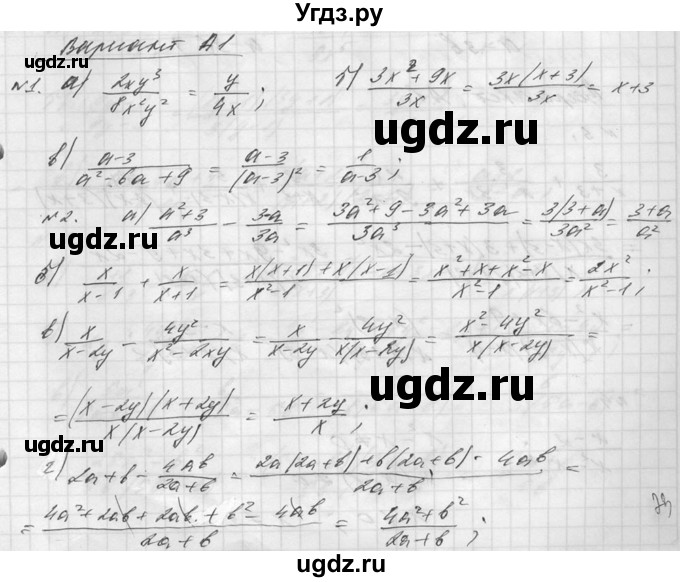 Угдз.ру
Вариант А1
№1. а) 2xy³/8x²y² = y/4x ; б) 3x²+9x/3x = 3x(x+3)/3x = x+3
ugdz.ru
ugdz.ru
в) a-3/a²-6a+9 = a-3/(a-3)² = 1/a-3 ;
ugdz.ru
№2. а) a²+3/a³ - 3-a/3a = 3a²+9-3a²+3a/3a³ = 3(3+a)/3a² = 3+a/a²
ugdz.ru
б) x/x-1 + x/x+1 = x(x+1)+x(x-1)/x²-1 = x²+x+x²-x/x²-1 = 2x²/x²-1 ;
в) x/x-2y - 4y²/x²-2xy = x/x-2y - 4y²/x(x-2y) = x²-4y²/x(x-2y) =
ugdz.ru
ugdz.ru
= (x-2y)(x+2y)/x(x-2y) = x+2y/x ;
ugdz.ru
г) 2a+b - 4ab/2a+b = 2a(2a+b)+b(2a+b)-4ab/2a+b =
= 4a²+2ab+2ab+b²-4ab/2a+b = 4a²+b²/2a+b ;
ugdz.ru